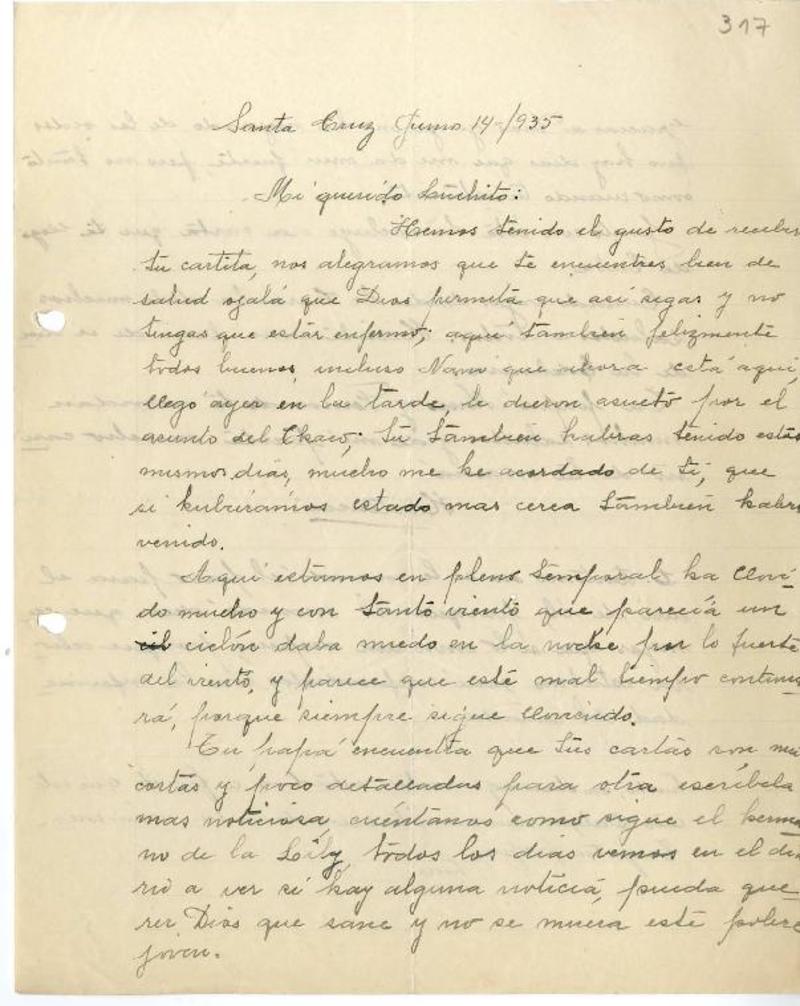 317
Santa Cruz Junio 14-/935
Mi querido Luchito:
Hemos tenido el gusto de recibir
tu cartita, nos alegramos que te encuentres bien de
salud ojalá que Dios permita que así sigas y no
tengas que estar enfermo; aquí tambien felizmente
todos buenos, incluso Nano que ahora está aquí,
llegó ayer en la tarde, le dieron asueto por el
asunto del Chaco; tú tambien habras tenido estos
mismos dias, mucho me he acordado de tí, que
si hubieramos estado mas cerca tambien habri
venido.
Aquí estamos en pleno temporal ha llovi-
do mucho y con tanto viento que parecía un
cicl ciclón daba miedo en la noche por lo fuerte
del viento, y parece que este mal tiempo continua
rá, porque siempre sigue lloviendo.
Tu papá encuentra que tus cartas son mui
cortas y poco detalladas para otra escríbela
mas noticiosa, cuéntanos como sigue el herma
no de la Loily, todos los dias vemos en el dia
rio a ver si hay alguna noticia, pueda que-
rer Dios que sane y no se muera este pobre
joven.